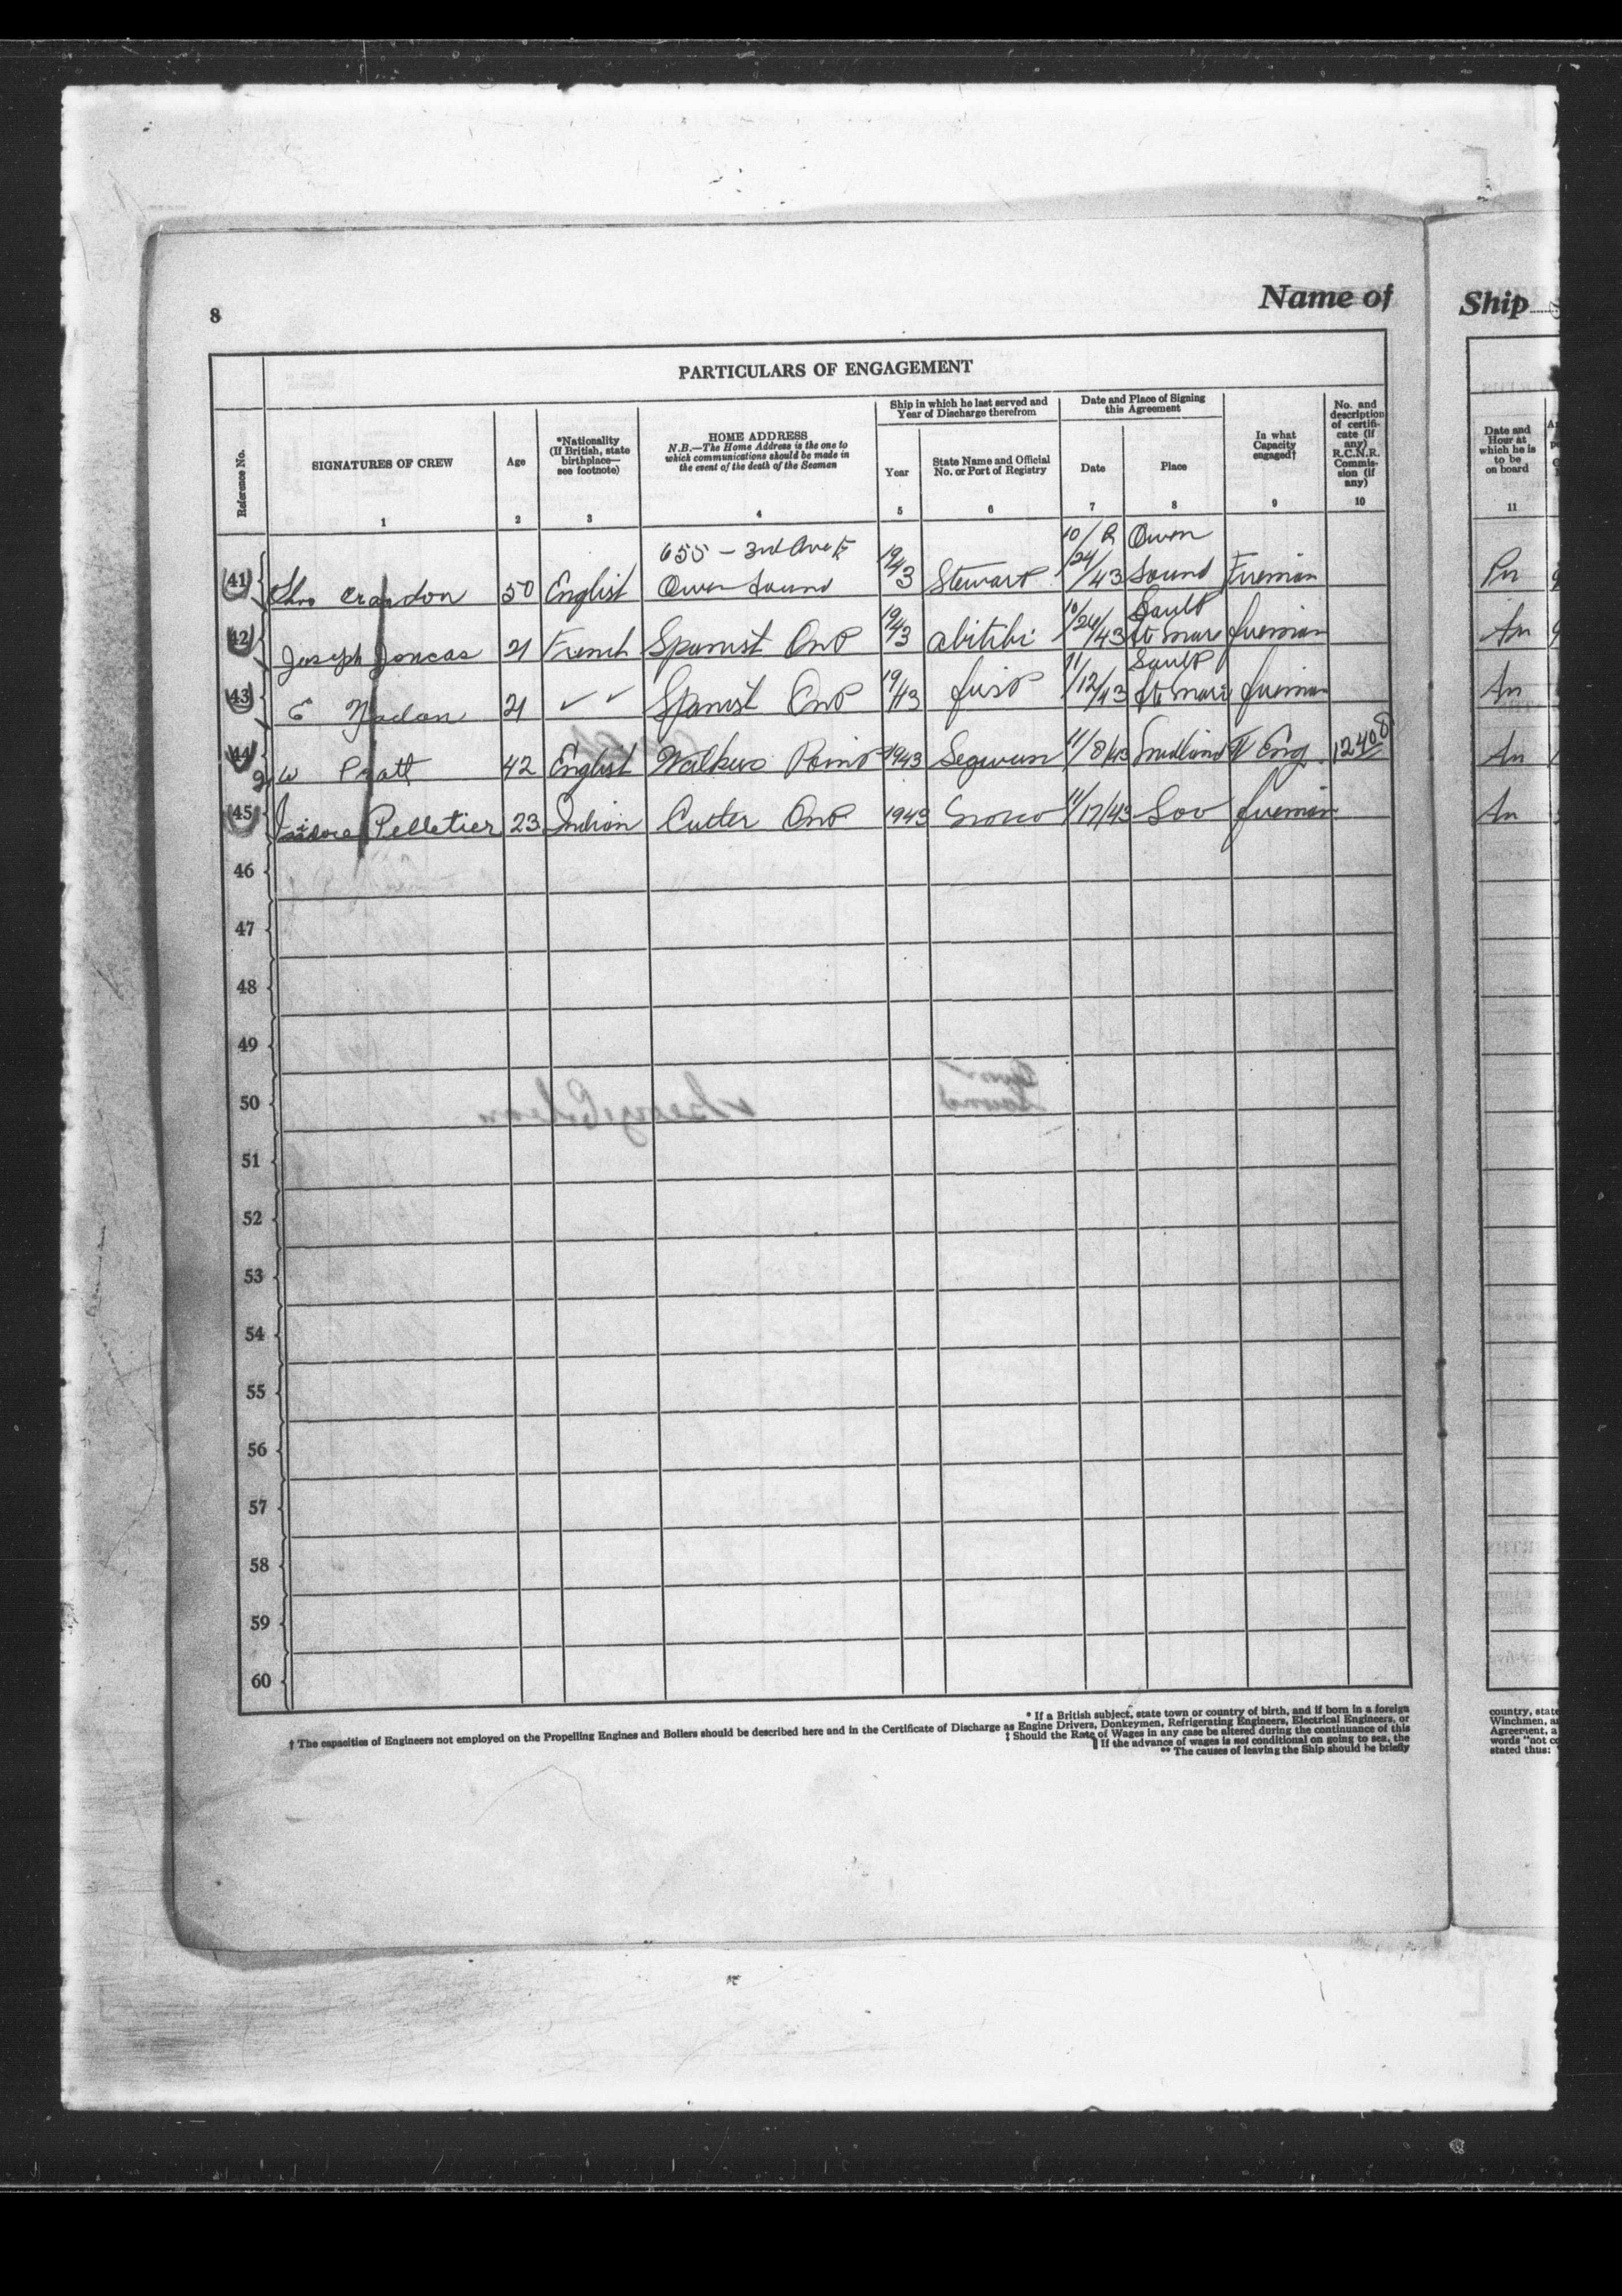 8
Name of
Ship
PARTICULARS OF ENGAGEMENT
Reference No.
SIGNATURES OF CREW
1
Age
2
*Nationality
(If British, state
birthplace—
see footnote)
3
HOME ADDRESS
N.B.—The Home Address is the one to
which communications should be made in
the event of the death of the Seaman
4
Ship in which he last served and
Year of Discharge therefrom
Year
5
State Name and Official
No. or Port of Registry
6
Date and Place of Signing
this Agreement
Date
7
Place
8
In what
Capacity
engaged†
9
No. and
description
of certifi-
cate (if
any)
R.C.N.R.
Commis-
sion (if
any)
10
Date and
Hour at
which he is
to be
on board
11
655 - 3rd Ave E
41 Crandon 50 English Owen Sound 1943 Stewart 10/24/43 Owen Sound Fireman
42 Joseph Joncas 21 French Spanish Ont 1943 Abitibi 10/24/43 Sault Ste Marie fireman
43 E Nadon 21 ✓ ✓ Spanish Ont 19/43 first 11/12/43 Sault Ste Marie fireman
44 W Pratt 42 English Walkers Point 1943 Segwun 11/8/43 Midland Eng 12408
45 Isidore Pelletier 23 Indian Cutler Ont 1943 11/17/43 Soo fireman
46
47
48
49
50
51
52
53
54
55
56
57
58
59
60
* If a British subject, state town or country of birth, and if born in a foreign
† The capacities of Engineers not employed on the Propelling Engines and Boilers should be described here and in the Certificate of Discharge as Engine Drivers, Donkeymen, Refrigerating Engineers, Electrical Engineers, or
‡ Should the Rate of Wages in any case be altered during the continuance of this
If the advance of wages is not conditional on going to sea, the
** The causes of leaving the Ship should be briefly
country, state
Winchmen,
Agreement, a
words "not
stated thus: